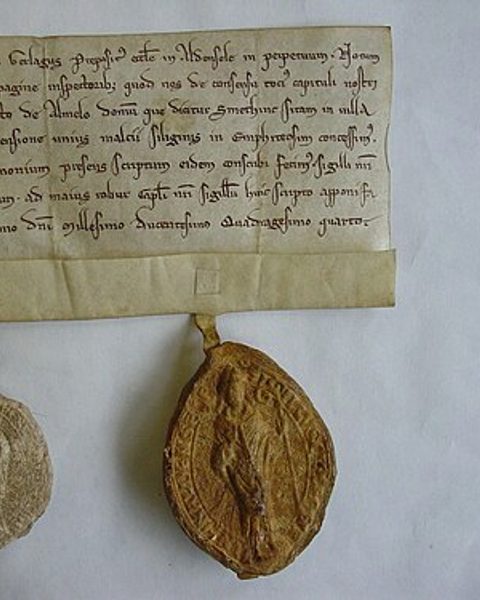 Gerlagus Preposit' eccl'e in Aldensele in perpetuum. Notum
pagine inspectorib; quod nos de consensu toci' capituli nostri
de Almelo domu' que dicitur Smethinc sitam in villa
ensione unius maltii siliginis in Emphiteosim concessim'.
monium presens scriptum eidem conscribi fecim' sigilli n'ri
ad maius robur Cap'li n'ri sigillu' huic scripto apponi
D'ni Millesimo Ducentesimo Quadragesimo quarto